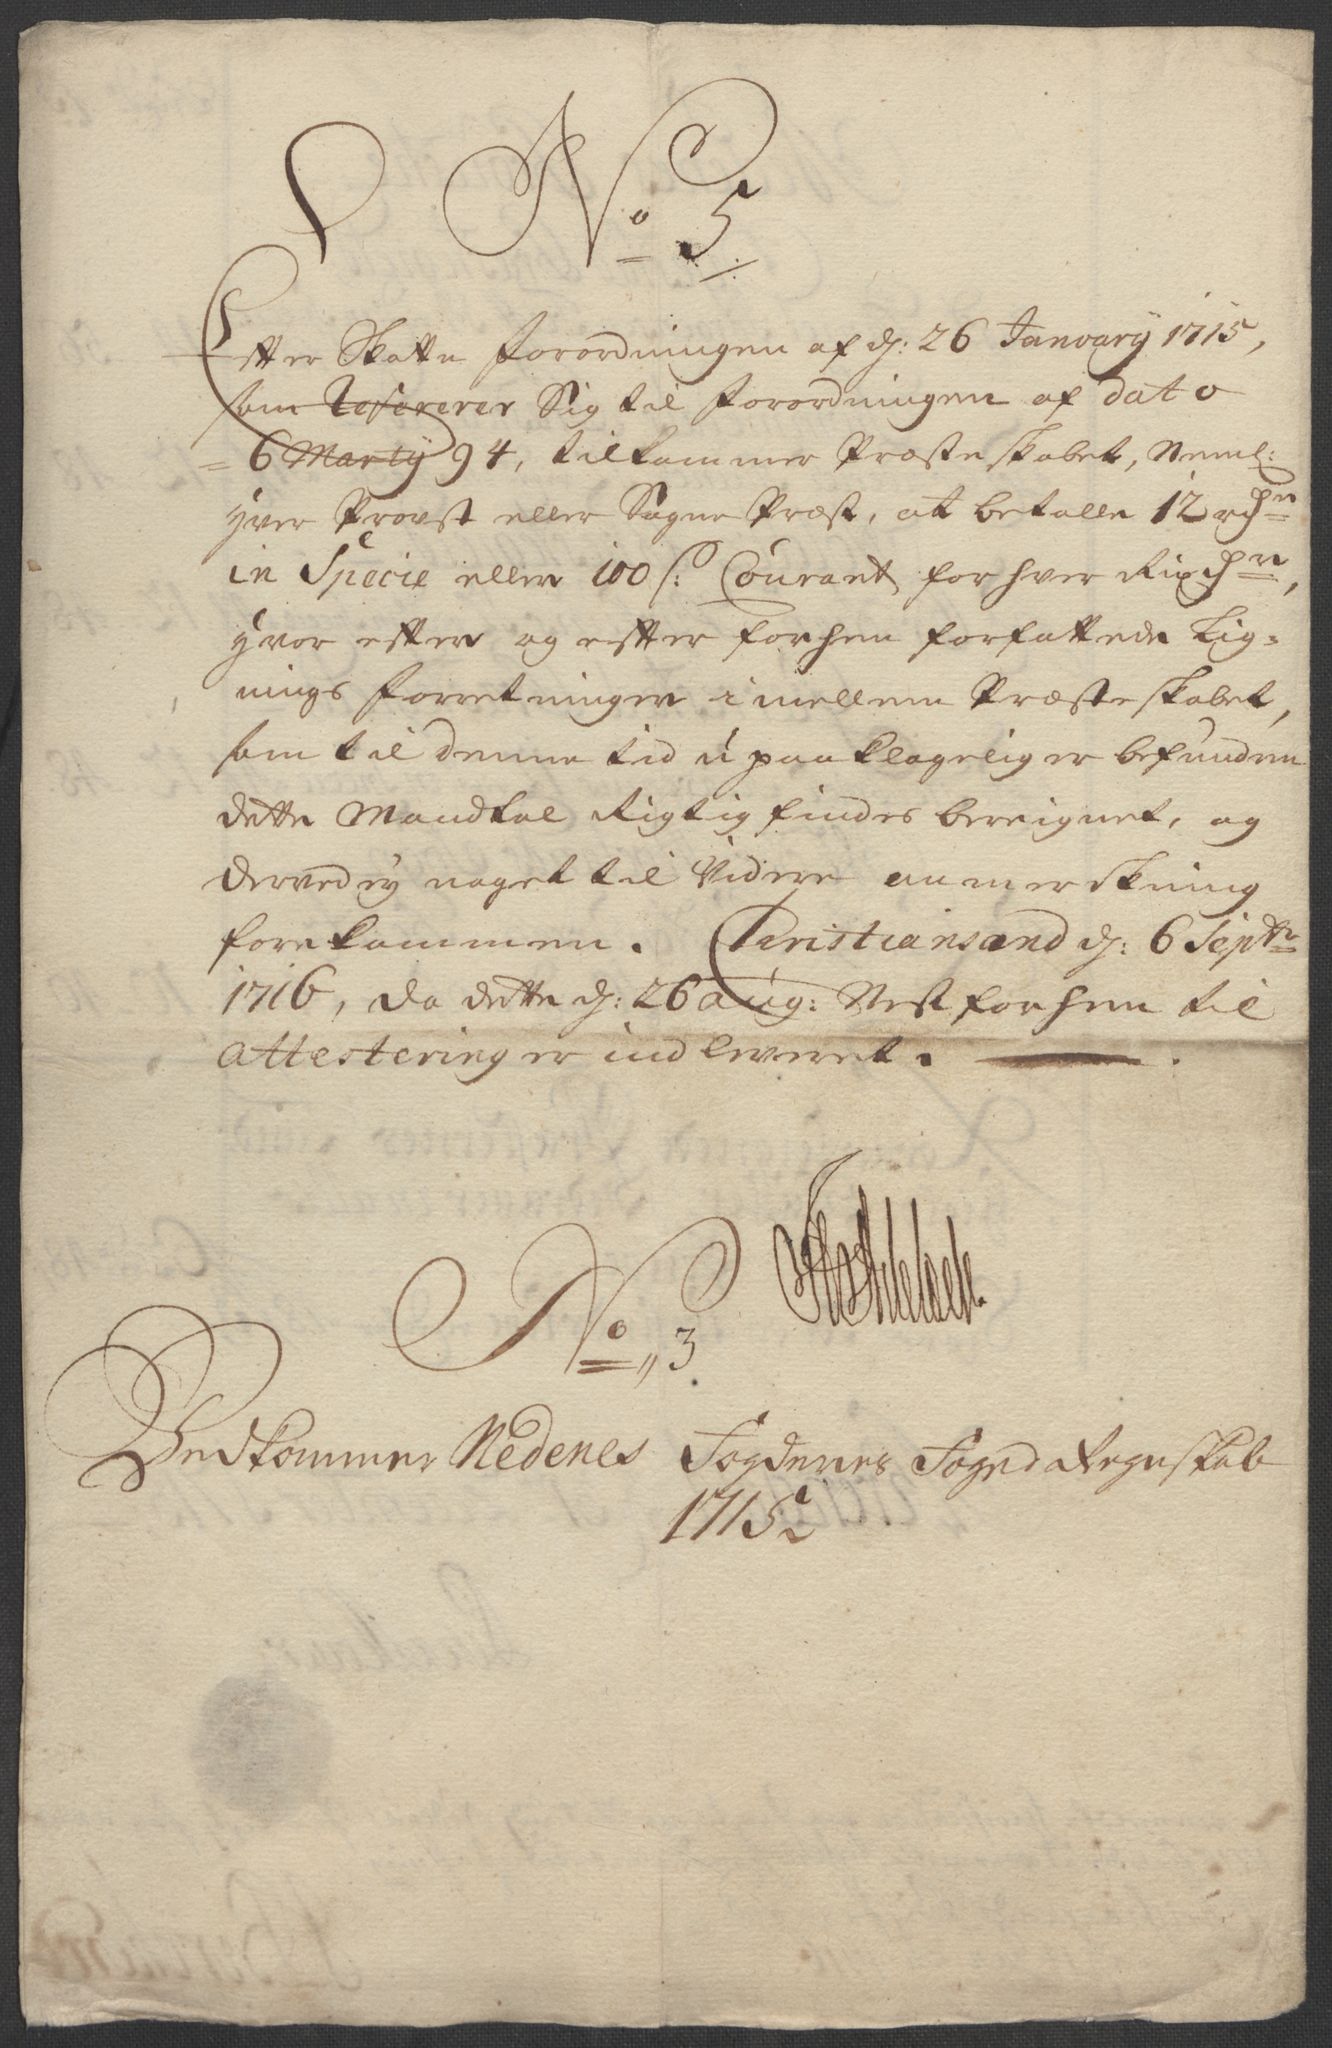 No 5
Efter Skatte forordningen af d: 26 Januarij 1715,
som Refererer Sig til forordningen af dato
= 6 Martij 94, tilkommer Præsteskabet, Neml:
hver Provst eller Sogne Præst, at betalle 12 rdr
in Specie eller 100 s: Courant for hver Rixdr,
hvor efter og efter forhen forfattede Lig=
nings forretninger imellem Præsteskabet,
som til denne tid upaaklagelig er befunden
dette Mandtal Rigtig findes bereignet, og
derved ej noget til Videre anmerckning
forekommen. Christiansand d: 6 Septr
1716, da dette d: 26 aug: Nest forhen til
attestering er indleveret.
No 3
Vedkommer Nedenes Fogderies Foged Regnskab
1715